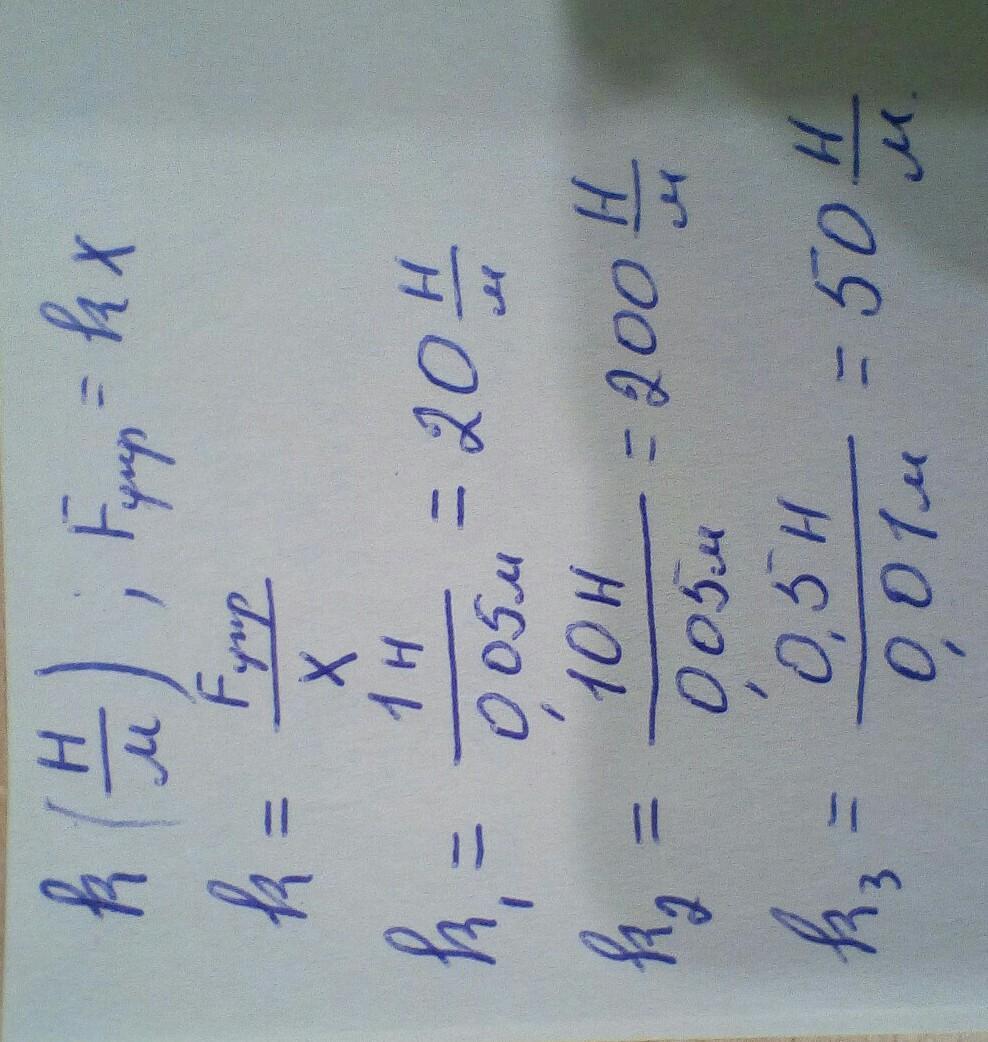 k (Н/м) ; Fупр = kx
k = Fупр/x
k₁ = 1Н/0,05м = 20 Н/м
k₂ = 10Н/0,05м = 200 Н/м
k₃ = 0,5Н/0,01м = 50 Н/м.